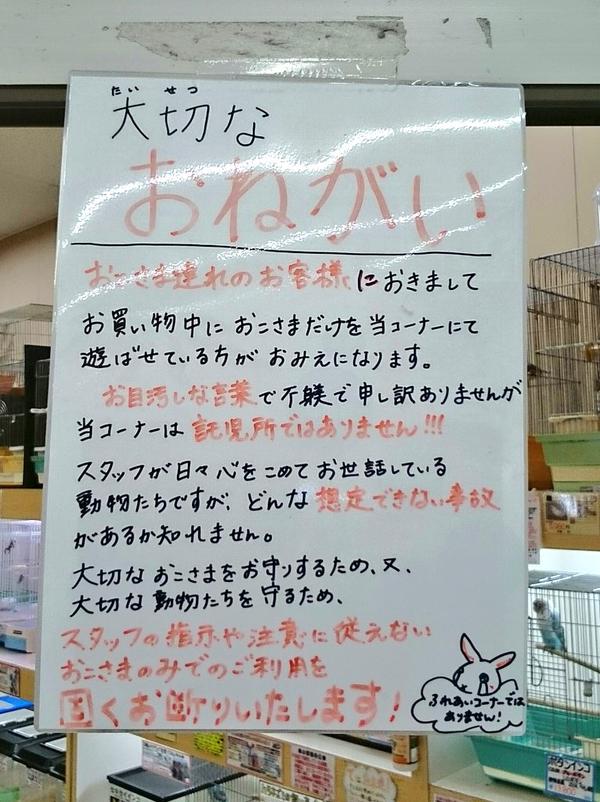 たい せつ
大切な
おねがい
おこさま連れのお客様におきまして
お買い物中に おこさまだけを当コーナーにて
遊ばせている方が おみえになります。
お目汚しな言葉で不躾で申し訳ありませんが
当コーナーは 託児所ではありません!!!
スタッフが日々心をこめてお世話している
動物たちですが、どんな想定できない事故
があるか知れません。
大切な おこさまをお守りするため、又、
大切な 動物たちを守るため、
スタッフの指示や注意に従えない
おこさまのみでのご利用を
固くお断りいたします!
ふれあいコーナーでは
ありません!
ボタンインコ